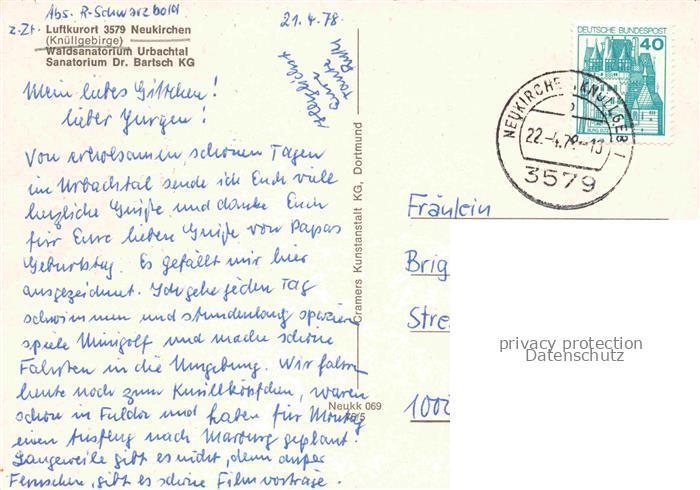 Abs. R. Schwarzbold
z. Zt. Luftkurort 3579 Neukirchen
(Knüllgebirge)
Waldsanatorium Urbachtal
Sanatorium Dr. Bartsch KG
21.4.78.
Mein liebes Gittchen!
lieber Jürgen!
Von erholsamen schönen Tagen
im Urbachtal sende ich Euch viele
herzliche Grüße und danke Euch
für Eure lieben Grüße von Papas
Geburtstag. Es gefällt mir hier
ausgezeichnet. Ich gehe jeden Tag
schwimmen und stundenlang spazieren
spiele Minigolf und mache schöne
Fahrten in die Umgebung. Wir fahren
heute noch zum Knüllköpfchen, waren
schon in Fulda und haben für Montag
einen Ausflug nach Marburg geplant!
Langeweile gibt es nicht, denn außer
Fernsehen, gibt es schöne Filmvorträge.
Herzlichst
Eure
Tante
Cramers Kunstanstalt KG, Dortmund
Neukk 069
DEUTSCHE BUNDESPOST
40
NEUKIRCHEN, KNÜLLGEB 1
22.-4.78.-10
3579
Fräulein
Brig
Stre
1000
privacy protection
Datenschutz